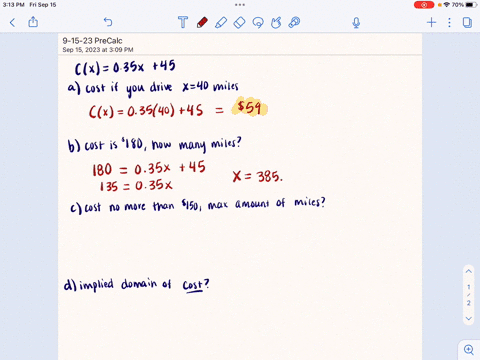 3:13 PM Fri Sep 15
70%
9-15-23 PreCalc
Sep 15, 2023 at 3:09 PM
C(x) = 0.35x + 45
a) cost if you drive x=40 miles
C(x) = 0.35(40) + 45 = $59
b) cost is $180, how many miles?
180 = 0.35x + 45
135 = 0.35x
x = 385.
c) cost no more than $150, max amount of miles?
d) implied domain of cost?
1
/
2